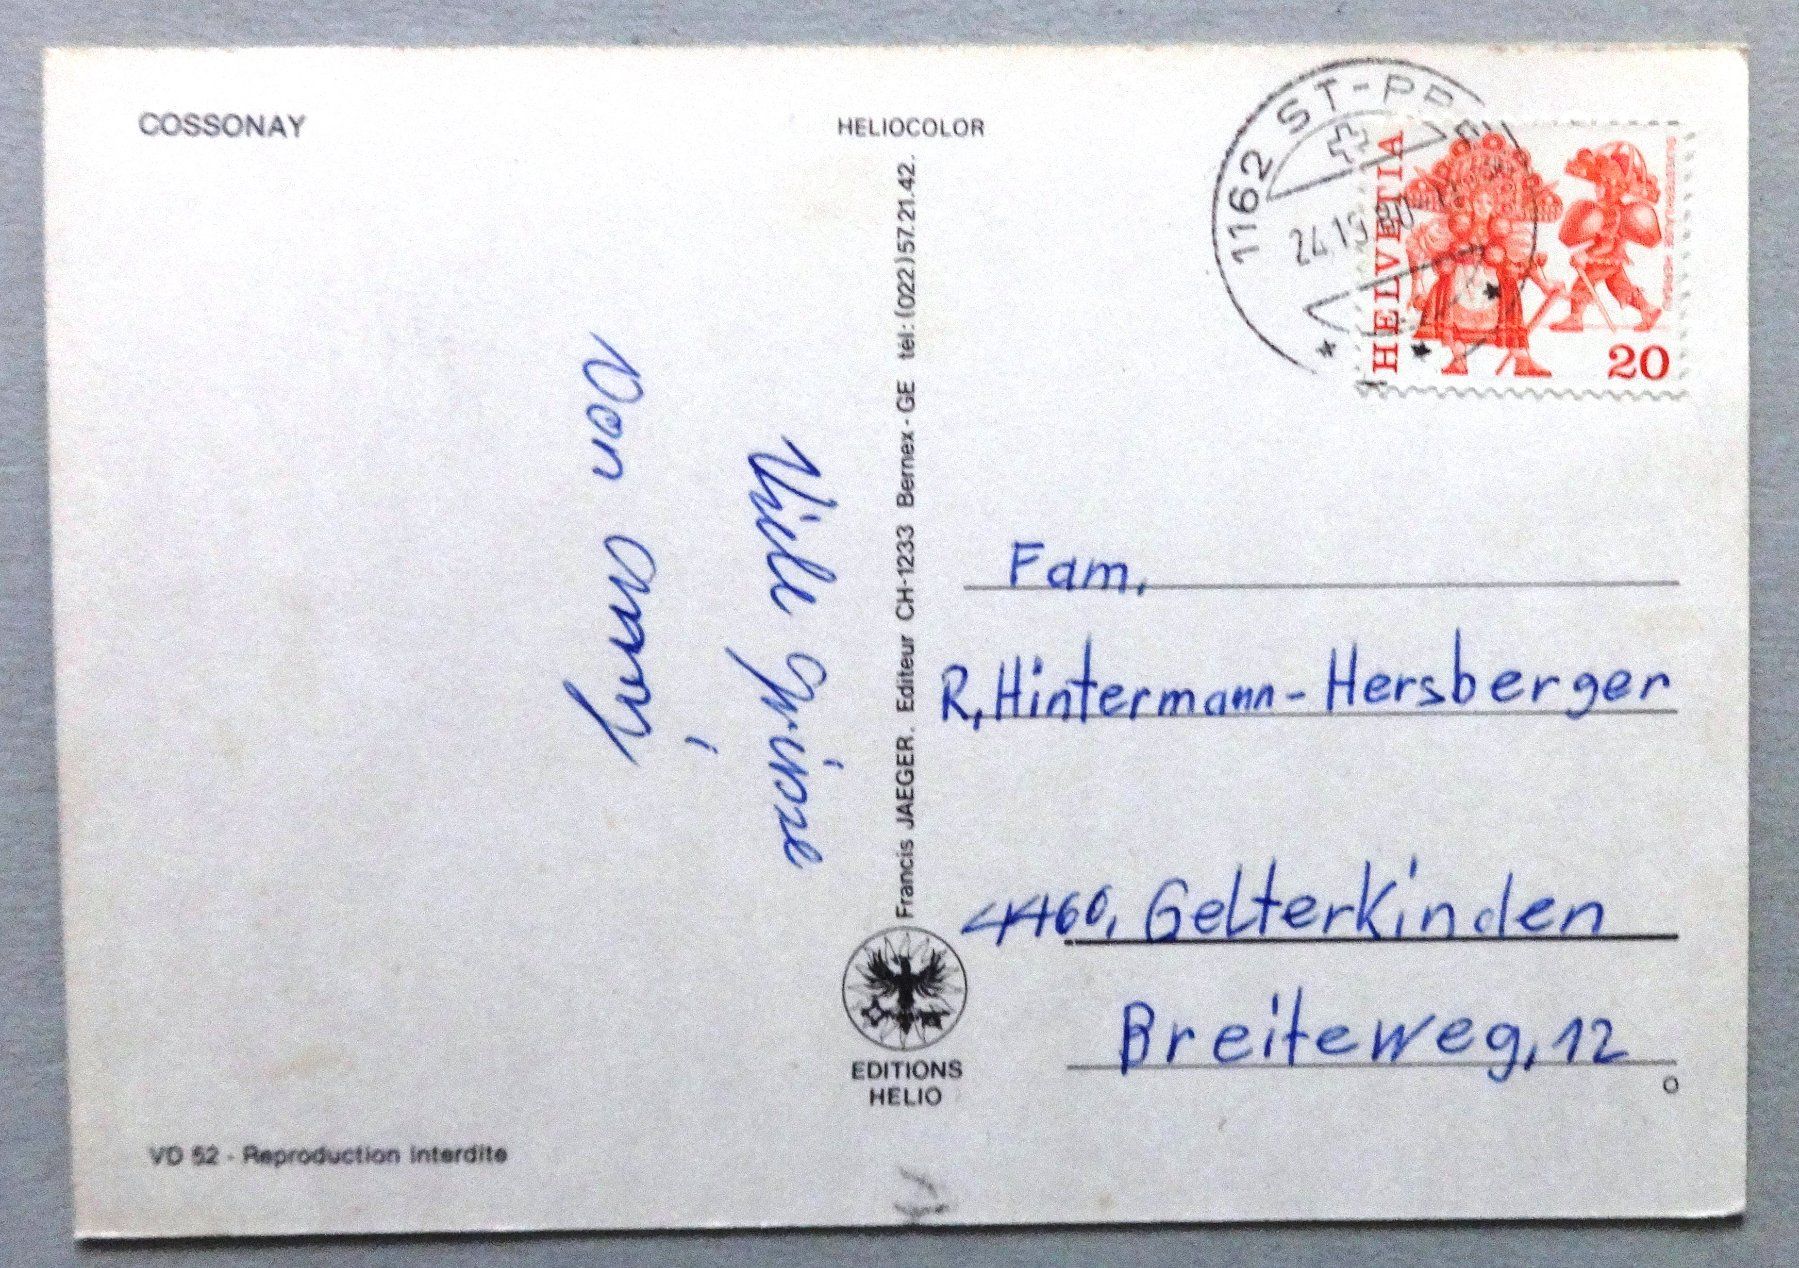 COSSONAY
HELIOCOLOR
1162 ST-PRE
HELVETIA
20
Viele Grüsse
von
Francis JAEGER. Editeur CH-1233 Bernex-GE tél: (022) 57.21.42.
Fam,
R, Hintermann-Hersberger
4460, Gelterkinden
Breiteweg, 12
EDITIONS
HELIO
VD 52 - Reproduction interdite